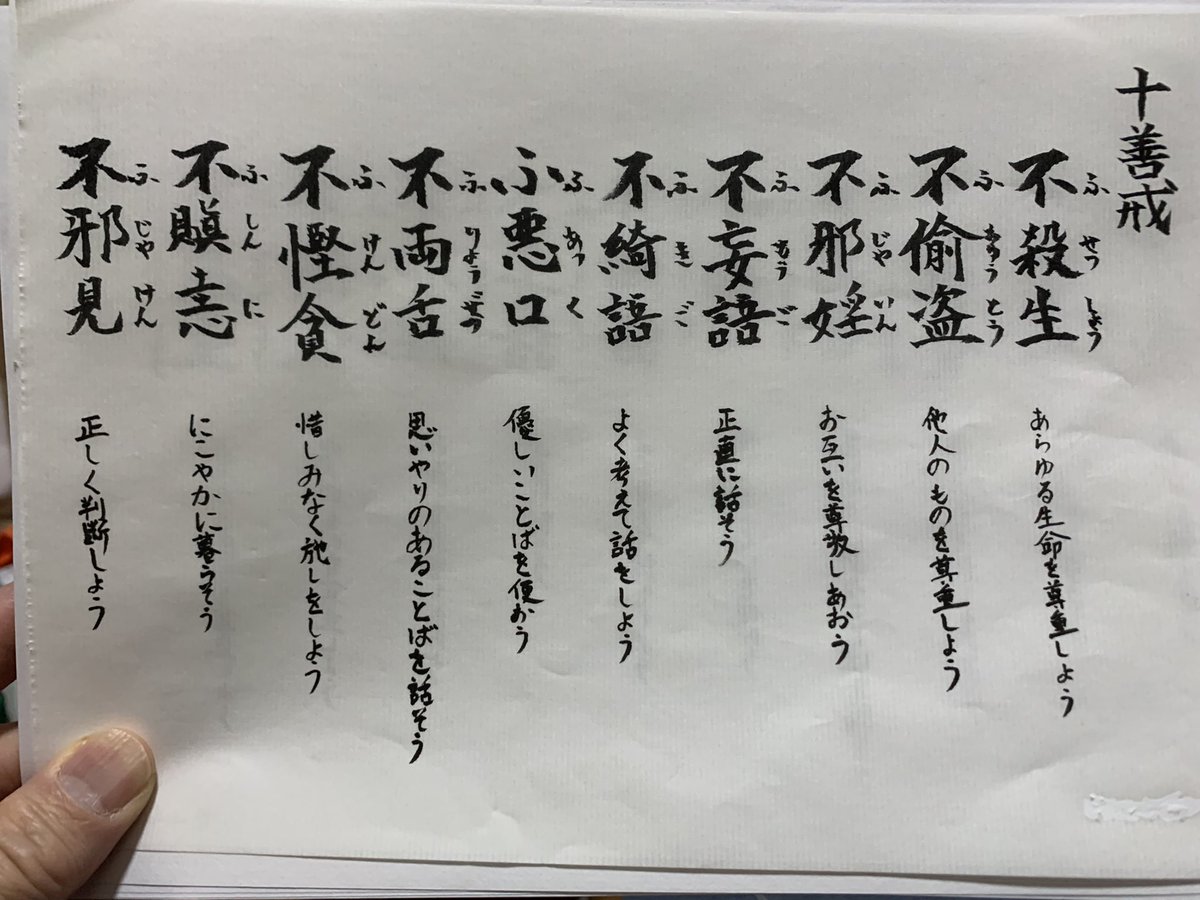 十善戒
不殺生 ふ せっ しょう
あらゆる生命を尊重しよう
不偸盗 ふ ちゅう とう
他人のものを尊重しよう
不邪婬 ふ じゃ いん
お互いを尊敬しあおう
不妄語 ふ もう ご
正直に話そう
不綺語 ふ き ご
よく考えて話をしよう
不悪口 ふ あっ く
優しいことばを使おう
不両舌 ふ りょう ぜつ
思いやりのあることばを話そう
不慳貪 ふ けん どん
惜しみなく施しをしよう
不瞋恚 ふ しん に
にこやかに暮らそう
不邪見 ふ じゃ けん
正しく判断しよう